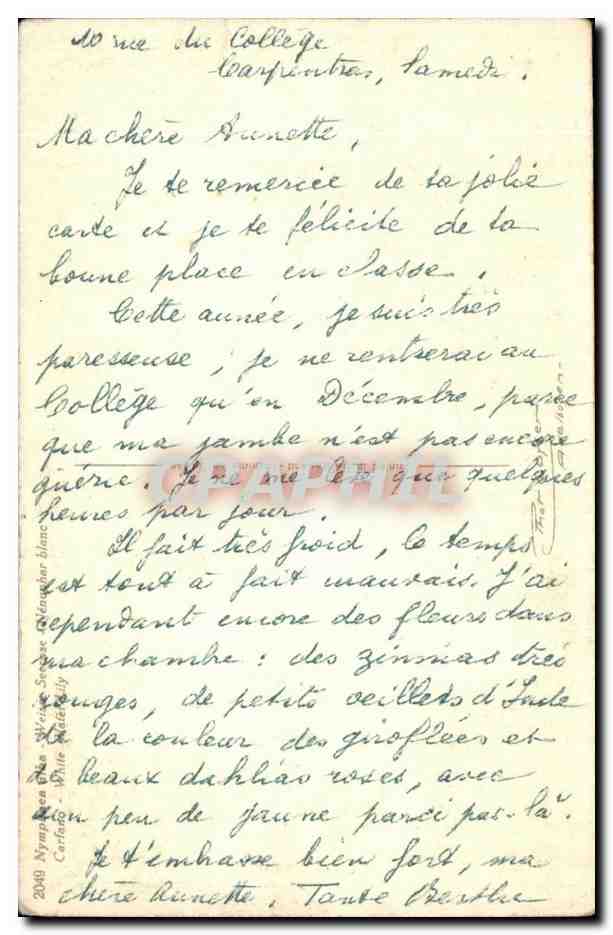 10 rue du Collège
Carpentras, Samedi.
Ma chère Annette,
Je te remercie de ta jolie
carte et je te félicite de ta
bonne place en classe.
Cette année, je suis très
paresseuse, je ne rentrerai au
Collège qu'en Décembre, parce
que ma jambe n'est pas encore
guérie. Je ne me lève que quelques
heures par jour.
Il fait très froid, le temps
est tout à fait mauvais. J'ai
cependant encore des fleurs dans
ma chambre : des zinnias très
rouges, de petits oeillets d'Inde
de la couleur des giroflées et
de beaux dahlias roses, avec
un peu de jaune parci par-là.
Je t'embrasse bien fort, ma
chère Annette. Tante Berthe
CPAPHIL
2049 Nymphaea alba - Weisse Seerose - Nénuphar blanc
Carfano - White Waterlily